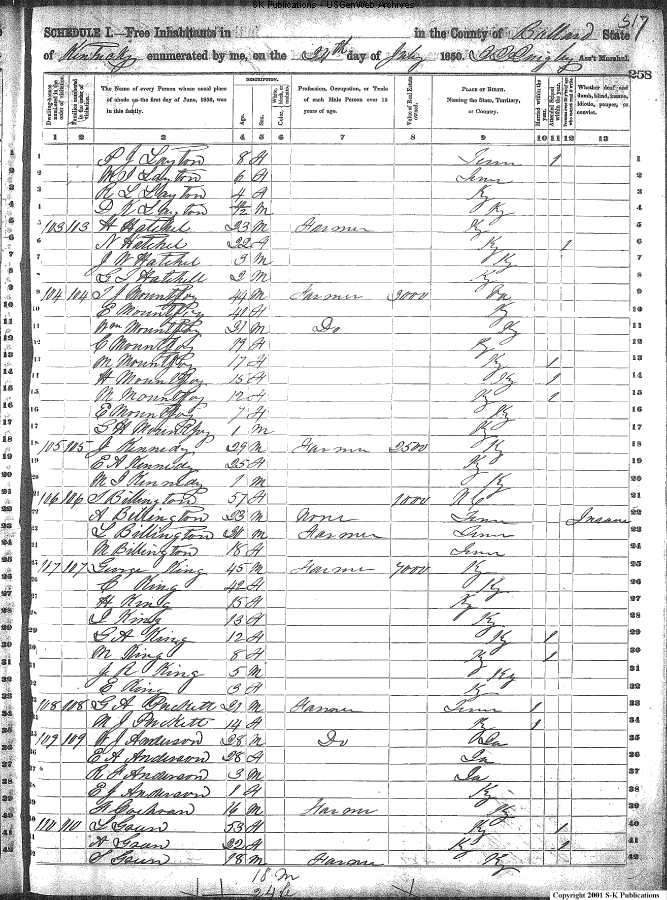 S-K Publications - USGenWeb Archives
317
SCHEDULE I.—Free Inhabitants in in the County of Ballard State
of Kentucky enumerated by me, on the 24th day of July 1850. Ass't Marshal.
258
Dwelling-houses numbered in the order of visitation.
Families numbered in the order of visitation.
The Name of every Person whose usual place of abode on the first day of June, 1850, was in this family.
DESCRIPTION.
Age.
Sex.
Color.
Profession, Occupation, or Trade of each Male Person over 15 years of age.
Value of Real Estate owned.
PLACE OF BIRTH. Naming the State, Territory, or Country.
Married within the year.
Attended School within the year.
Whether deaf and dumb, blind, insane, idiotic, pauper, or convict.
1 2 3 4 5 6 7 8 9 10 11 12 13
1 P J Layton 8 Tenn 1 1
2 Layton 6 Tenn 2
3 R L Layton 4 Ky 3
4 Layton M Ky 4
5 103 103 H Hatchel 23 M Farmer Ky 5
6 N Hatchel 22 Ky 1 6
7 J W Hatchel 3 M Ky 7
8 G Hatchell 2 M Ky 8
9 104 104 Mountjoy 44 M Farmer 3000 Va 9
10 E Mountjoy 41 Ky 10
11 Wm Mountjoy 21 M Do Ky 11
12 C Mountjoy 19 Ky 12
13 M Mountjoy 17 Ky 1 13
14 H Mountjoy 15 Ky 1 14
15 M Mountjoy 12 Ky 1 15
16 E Mountjoy 7 Ky 16
17 G H Mountjoy 1 M Ky 17
18 105 105 J Kennedy 29 M Farmer 2500 Ky 18
19 E A Kennedy 25 Ky 19
20 M J Kennedy 1 M Ky 20
21 106 106 Billington 57 1000 N C 21
22 A Billington 23 M None Tenn Insane 22
23 L Billington M Farmer Tenn 23
24 M Billington 18 Tenn 24
25 107 107 George King 45 M Farmer 7000 Ky 25
26 C King 42 Ky 26
27 H King 15 Ky 27
28 King 13 Ky 28
29 G A King 12 Ky 1 29
30 M King 8 Ky 1 30
31 J R King 5 M Ky 31
32 E King 3 Ky 32
33 108 108 G A Puckett 21 M Farmer Tenn 1 33
34 M J Puckett 14 Ky 1 34
35 109 109 Anderson 28 M Do 35
36 E A Anderson 28 36
37 R F Anderson 3 M 37
38 E J Anderson 1 Ky 38
39 16 M Farmer Ky 39
40 110 110 S Goun 53 Ky 1 40
41 N Goun 22 Ky 1 41
42 Goun 18 M Farmer Ky 42
18 M
24
Copyright 2001 S-K Publications